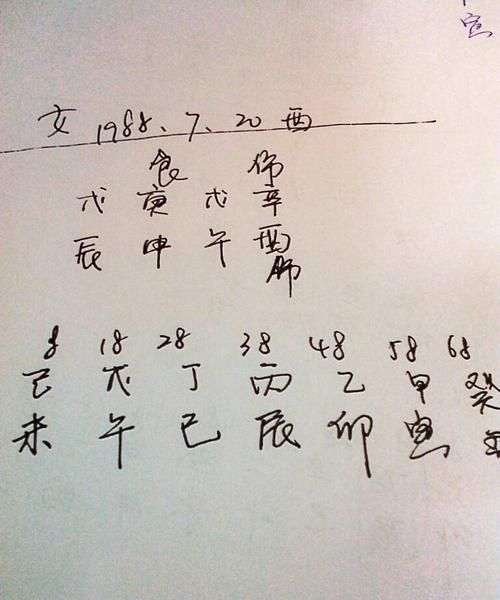 寅
女 1988.7.20 酉
食 伤
戊 庚 戊 辛
辰 申 午 酉
伤
8 18 28 38 48 58 68
己 戊 丁 丙 乙 甲 癸
未 午 巳 辰 卯 寅